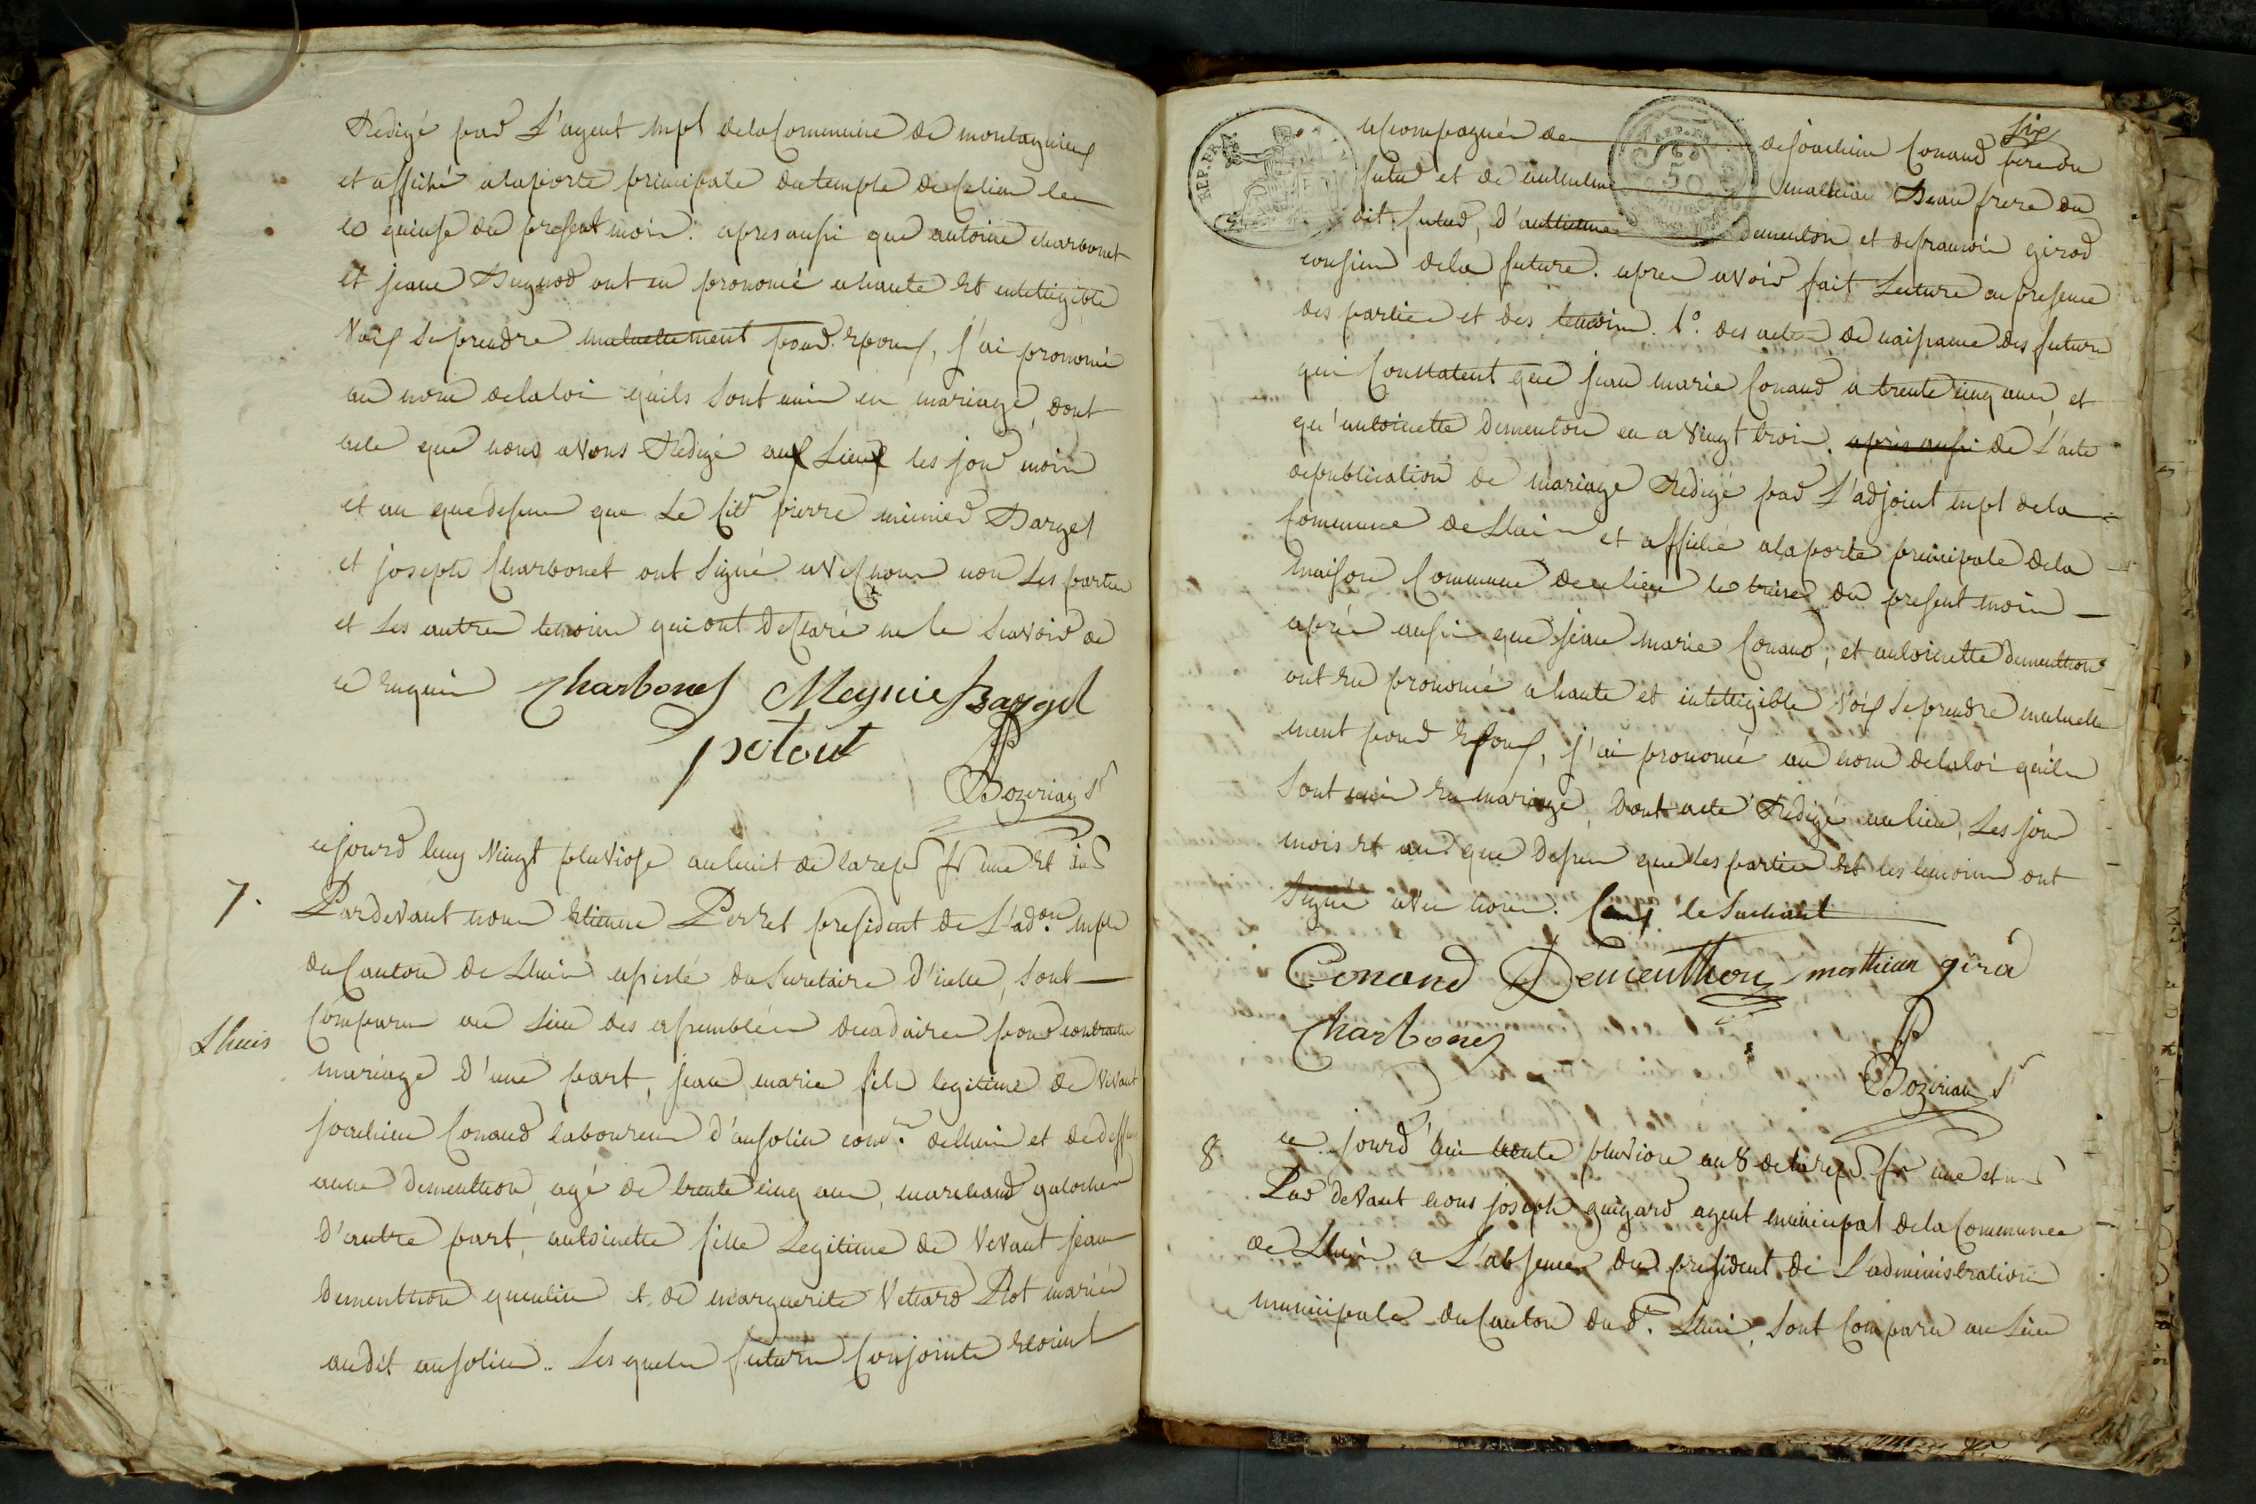 Redigé par L'agent mpl de la Commune de montagnieux
et affiché a la porte principale du temple de ce lieu le
quinse du present mois. apres aussi que antoine charbonet
et jeane Bugnod ont eu prononcé a haute et intelligible
Voix se prendre mutuellement pour epoux, j'ai prononcé
au nom de la loi qu'ils sont unis en mariage, dont
acte que nous avons Redigé aux Lieux les jour mois
et an que dessus que Le Cit.n pierre meunier Barget
et joseph Charbonet ont signé avec nous non Les parties
et Les autres temoins qui ont declaré ne le scavoir de
ce requis Charbonet Meynier Bargel
potout
Bozonian S
7.
ce jourd huy vingt pluviose an huit de la rep fr une et ind
Pardevant nous Etienne Perret president de L'ad.on mple
du Canton de Lhuis assisté du secretaire d'icelle, sont
Lhuis
Comparu au Lieu des assemblées decadaires pour contracter
mariage d'une part, jean marie fils legitime de vivant
joachim Conand laboureur d'ansolin com.ne de lhuis et de deffunte
anne dementhon, agé de trente cinq ans, marchand galochier
D'autre part, antoinette fille Legitime de Vivant jean
dementhon et de marguerite Vettard Plot mariés
audit ansolin. Les quels futurs Conjoints etoient
accompagnés de de joachim Conand pere du
futur et de anthelme mathieu Beau frere du
dit futur, d'anthelme dementon et de francois girod
cousin de la future. apres avoir fait Lecture en presence
des parties et des temoins. 1°. des actes de naissance des futurs
qui Constatent que jean marie Conand a trente cinq ans, et
qu'antoinette dementon en a vingt trois. apres aussi de L'acte
de publication de mariage Redigé par L'adjoint mpl de la
Commune de Lhuis et affiché a la porte principale de la
maison Commune de ce lieu le treise du present mois
après aussi que jean marie Conand, et antoinette dementhon
ont eu prononcé a haute et intelligible voix se prendre mutuelle
ment pour Epoux, j'ai prononcé au nom de la loi qu'ils
sont unis en mariage, dont acte Redigé au lieu, Les jour
mois et an que Dessus que les parties et les temoins ont
Signé avec nous. Ceux le sachant
Conand Dementhon mathieu girod
Charbonet
Bozonian S
8
ce jourd'hui trente pluviose an 8 de la rep fr une et ind
Par devant nous joseph guigard agent municipal de la Commune
de Lhuis a L'absence du president de L'administration
municipale du Canton du d. Lhuis, sont Comparu au Lieu